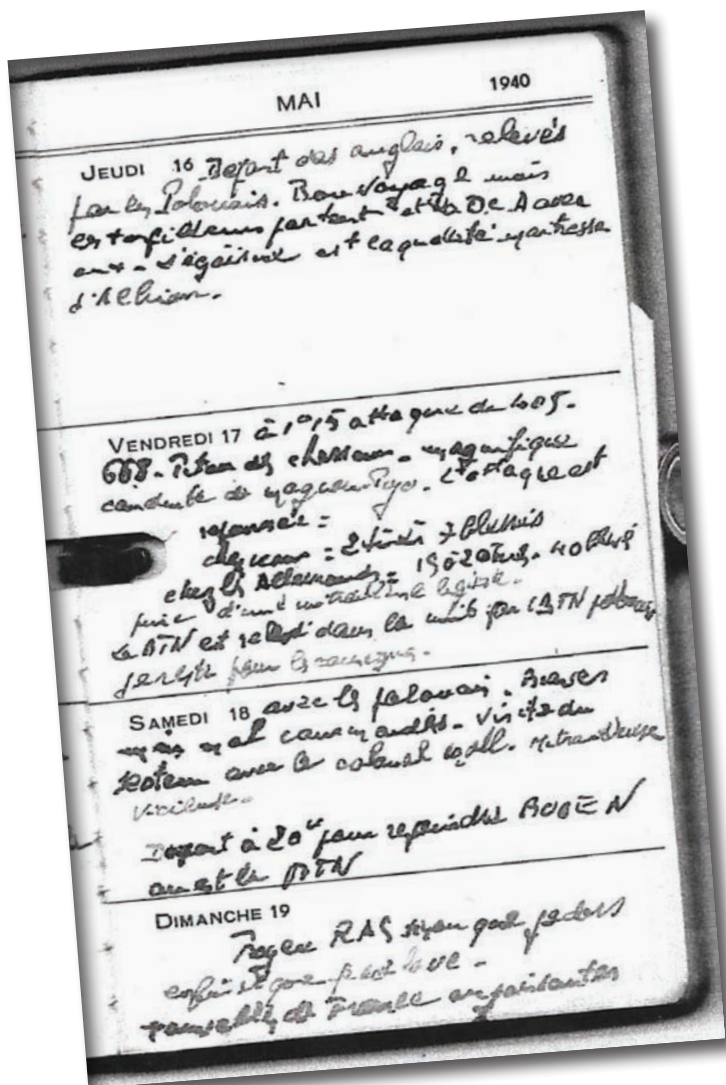 MAI 1940
JEUDI 16 Depart des anglais, relevés
par les Polonais. Bon voyage mais
les torpilleurs partent et la DCA avec
eux - L'égoïsme est la qualité maitresse
d'Albion.
VENDREDI 17 à 1h15 attaque du
668. chasseurs - magnifique
conduite de L'attaque est
repoussée =
chez nous = 2 tués 7 blessés
chez les Allemands = 15 à 20 tués - 40 blessés
prise d'une mitrailleuse légère.
Le BTN est relevé dans la nuit par 1 BTN polonais
je reste pour les
SAMEDI 18 avec les polonais. Braves
mais mal commandés - Visite du
avec le colonel
Depart à 20h pour rejoindre BODEN
ou est le BTN
DIMANCHE 19
Repos RAS sinon que je dors
enfin et que
nouvelles de France